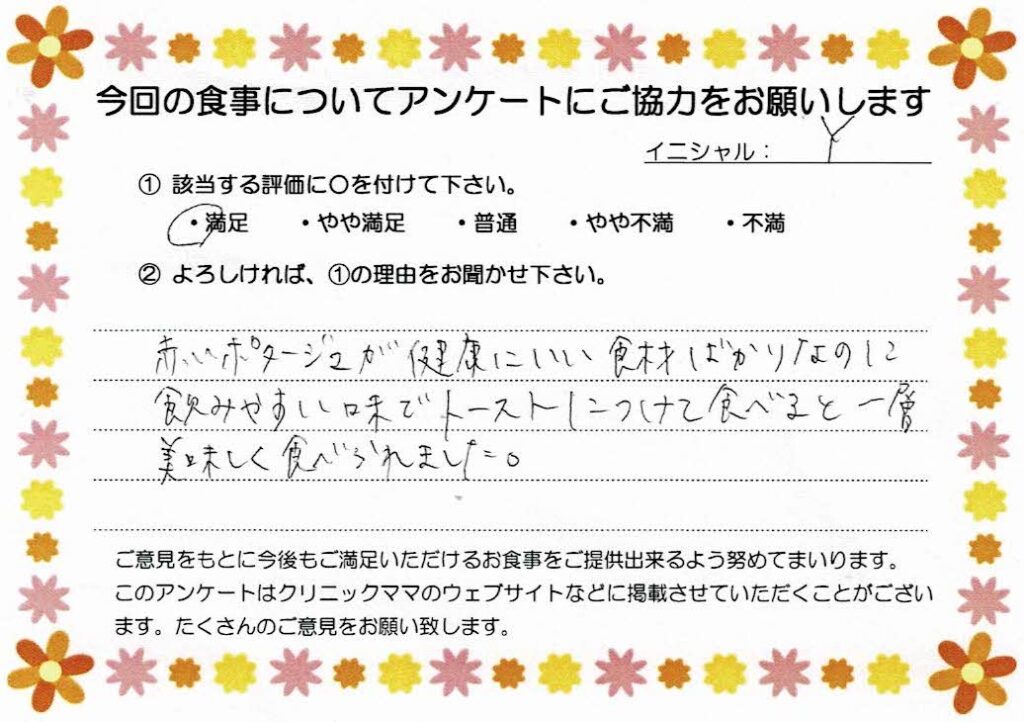 今回の食事についてアンケートにご協力をお願いします
イニシャル： Y
① 該当する評価に〇を付けて下さい。
・満足 ・やや満足 ・普通 ・やや不満 ・不満
② よろしければ、①の理由をお聞かせ下さい。
赤いポタージュが健康にいい食材ばかりなのに
飲みやすい味でトーストにつけて食べると一層
美味しく食べられました。
ご意見をもとに今後もご満足いただけるお食事をご提供出来るよう努めてまいります。
このアンケートはクリニックママのウェブサイトなどに掲載させていただくことがござい
ます。たくさんのご意見をお願い致します。